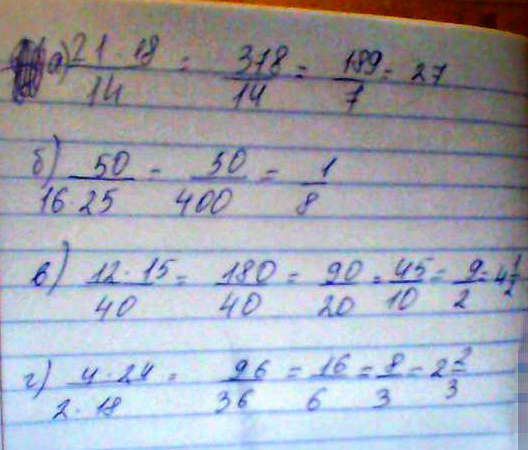 а) 21·18/14 = 378/14 = 189/7 = 27
б) 50/16·25 = 50/400 = 1/8
в) 12·15/40 = 180/40 = 90/20 = 45/10 = 9/2 = 4 1/2
г) 4·24/2·18 = 96/36 = 16/6 = 8/3 = 2 2/3